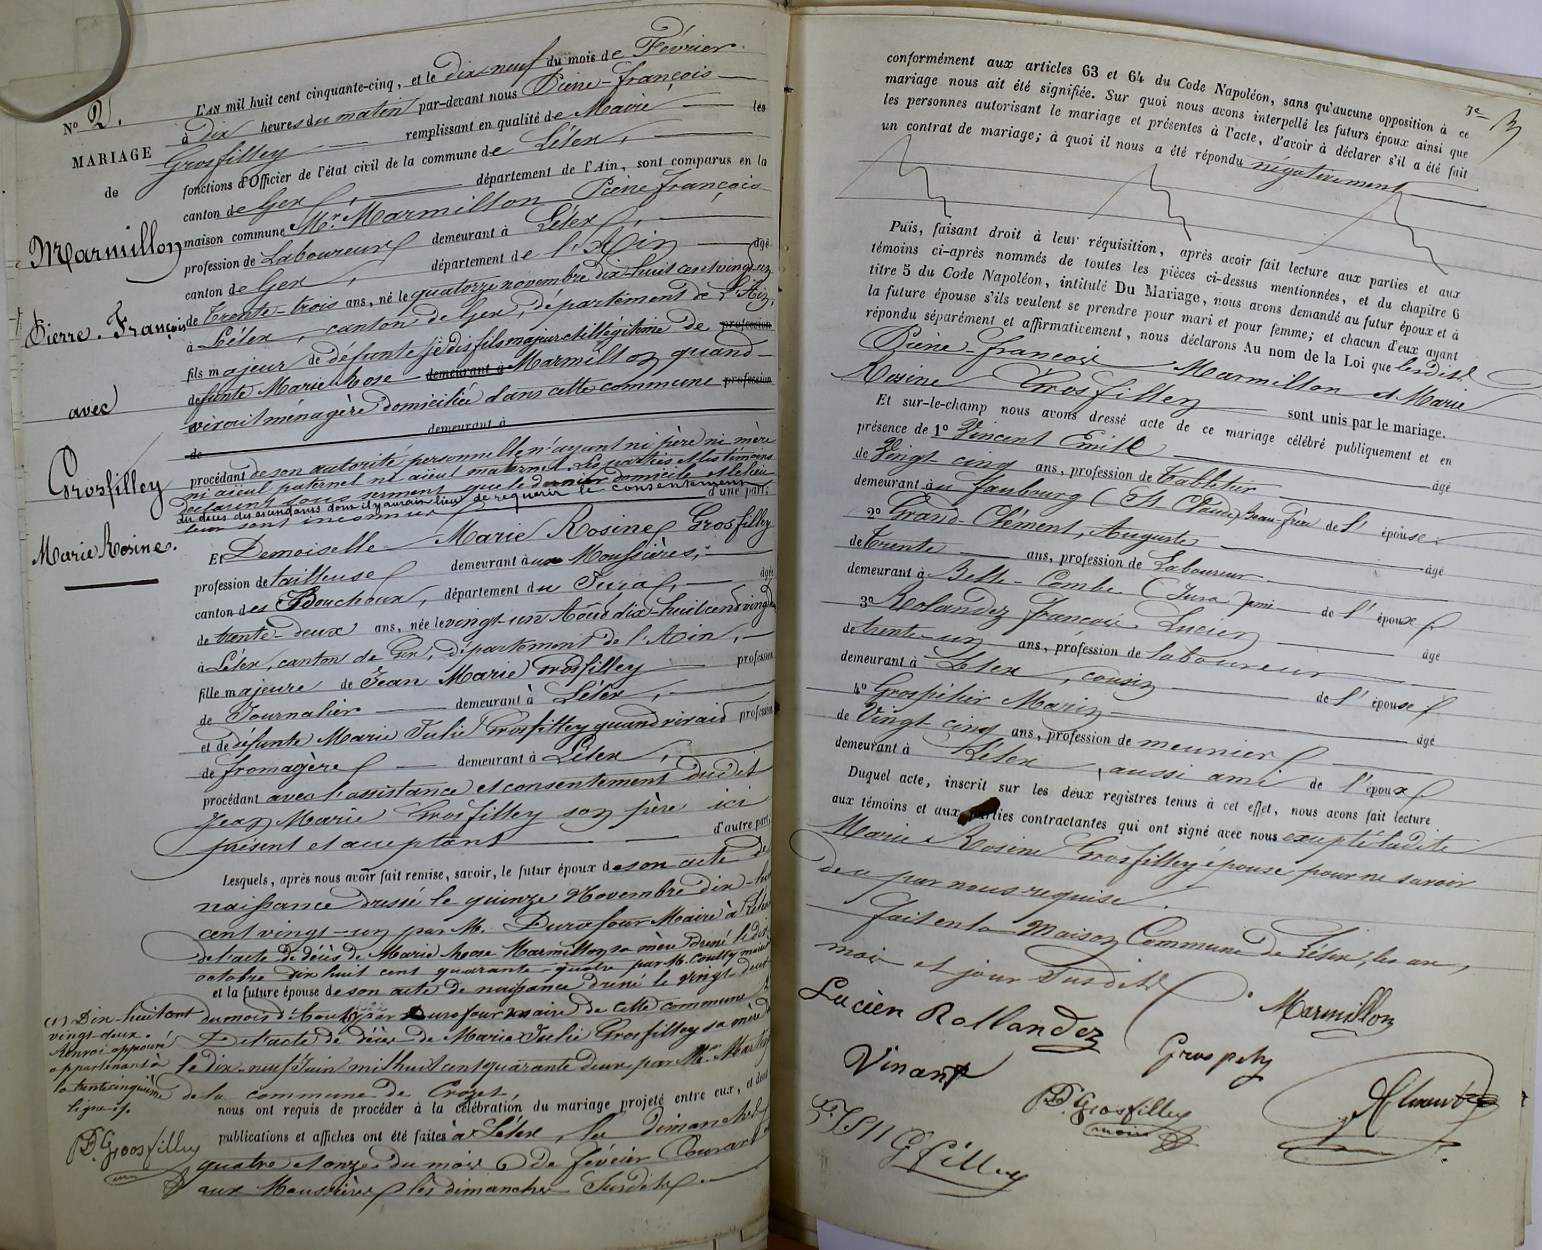 L'AN mil huit cent cinquante-cinq, et le dix-neuf du mois de Février
à Dix heures du matin par-devant nous Pierre-François
Grosfilley remplissant en qualité de Maire les
fonctions d'Officier de l'état civil de la commune de Lélex,
canton de Gex, département de l'Ain, sont comparus en la
maison commune Mr Marmillon Pierre François
profession de Laboureur demeurant à Lélex,
canton de Gex, département de l'Ain âgé
de trente-trois ans, né le quatorze novembre dix-huit cent vingt un
à Lélex, canton de Gex, département de l'Ain,
fils majeur de défunte je dis fils majeur et illégitime de profession
défunte Marie Rose demeurant à Marmillon quand
vivait ménagère domiciliée dans cette commune profession
de demeurant à
procédant de son autorité personnelle n'ayant ni père ni mère
ni aïeul paternel ni aïeul maternel. Les parties et les témoins
déclarent sous serment que le dernier domicile et le lieu
du décès des ascendants dont il y aurait lieu de requérir le consentement
leur sont inconnus d'une part;
Et Demoiselle Marie Rosine Grosfilley
profession de tailleuse demeurant aux Moussières,
canton des Bouchoux, département du Jura, âgée
de trente-deux ans, née le vingt un Août dix-huit cent vingt
à Lélex, canton de Gex, département de l'Ain,
fille majeure de Jean Marie Grosfilley profession
de Journalier demeurant à Lélex,
et de défunte Marie Julie Grosfilley quand vivait profession
de fromagère demeurant à Lélex,
procédant avec l'assistance et consentement dudit
Jean Marie Grosfilley son père ici
présent et acceptant d'autre part.
Lesquels, après nous avoir fait remise, savoir, le futur époux de son acte de
naissance dressé le quinze Novembre dix-huit
cent vingt-un par Mr. Duroafour Maire à Lélex
de l'acte de décès de Marie Rose Marmillon sa mère dressé le dix
octobre dix huit cent quarante-quatre par M. Coutty maire
et la future épouse de son acte de naissance dressé le vingt-deux
du mois d'Août par Duroafour maire de cette commune
De l'acte de décès de Marie Julie Grosfilley sa mère
le dix-neuf Juin mil huit cent quarante deux par Mr
de la commune de Crozet,
nous ont requis de procéder à la célébration du mariage projeté entre eux, et dont
publications et affiches ont été faites à Lélex, les dimanches
quatre et onze du mois de février Courant
aux Moussières les dimanches Susdits.
No 2.
MARIAGE
de
Marmillon
Pierre. François
avec
Grosfilley
Marie Rosine.
(1) Dix-huit cent
vingt-deux.
Renvoi approuvé
appartenant à
la trente cinquième
ligne
P. F. Grosfilley
3
conformément aux articles 63 et 64 du Code Napoléon, sans qu'aucune opposition à ce
mariage nous ait été signifiée. Sur quoi nous avons interpellé les futurs époux ainsi que
les personnes autorisant le mariage et présentes à l'acte, d'avoir à déclarer s'il a été fait
un contrat de mariage; à quoi il nous a été répondu négativement
Puis, faisant droit à leur réquisition, après avoir fait lecture aux parties et aux
témoins ci-après nommés de toutes les pièces ci-dessus mentionnées, et du chapitre 6
titre 5 du Code Napoléon, intitulé Du Mariage, nous avons demandé au futur époux et à
la future épouse s'ils veulent se prendre pour mari et pour femme; et chacun d'eux ayant
répondu séparément et affirmativement, nous déclarons Au nom de la Loi que lesdits
Pierre-François Marmillon et Marie
Rosine Grosfilley sont unis par le mariage.
Et sur-le-champ nous avons dressé acte de ce mariage célébré publiquement et en
présence de 1º Vincent Emile âgé
de Vingt cinq ans, profession de tabletier
demeurant au faubourg (St Claude) Beau-frère de l'épouse.
2º Grand-Clément, Auguste âgé
de trente ans, profession de Laboureur
demeurant à Belle-Combe (Jura) ami de l'époux.
3º Rolandez François Lucien âgé
de trente-un ans, profession de laboureur
demeurant à Lélex, cousin de l'épouse
4º Grospétier Marin âgé
de Vingt cinq ans, profession de meunier
demeurant à Lélex, aussi ami de l'époux
Duquel acte, inscrit sur les deux registres tenus à cet effet, nous avons fait lecture
aux témoins et aux parties contractantes qui ont signé avec nous excepté ladite
Marie Rosine Grosfilley épouse pour ne savoir
de ce par nous requise.
fait en la Maison Commune de Lélex, les an,
mois et jour Susdits.
Marmillon
Lucien Rollandez
Vinant
P. F. Grosfilley
maire